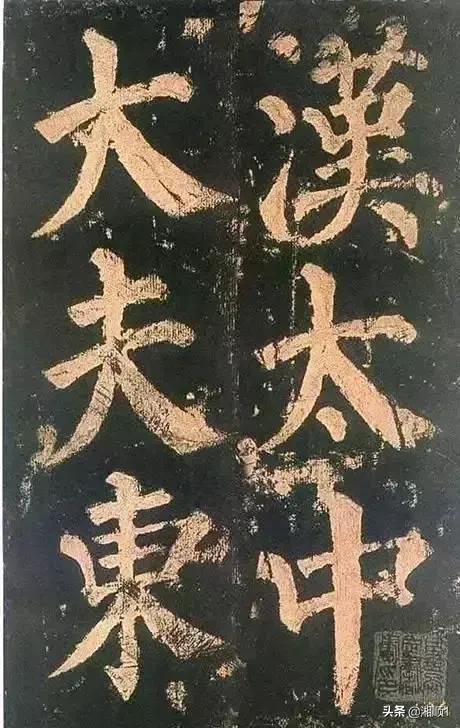 漢太中
大夫東
头条 @湘顶1